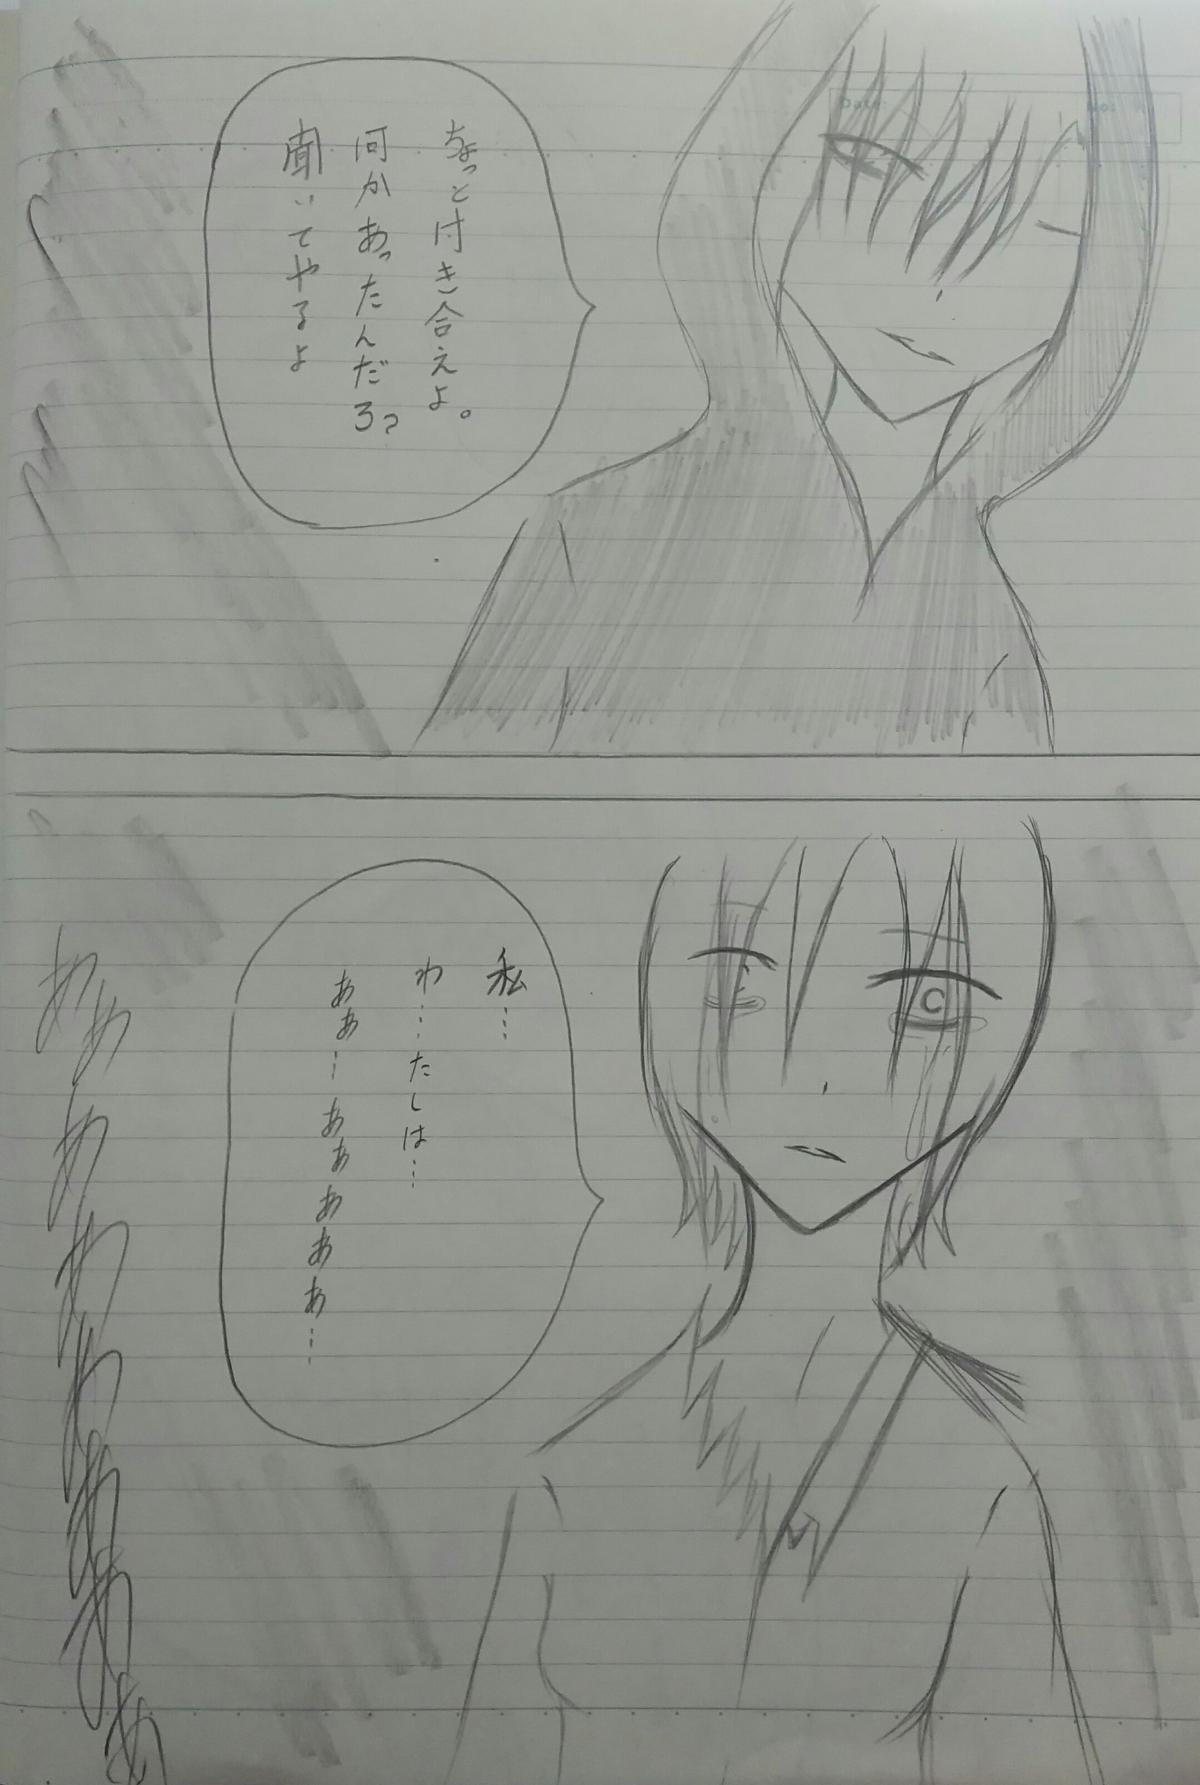 Date:
No:
ちょっと付き合えよ。
何かあったんだろ?
聞いてやるよ
私…
わ…たしは…
ああ…ああああぁ…
ああああああああ